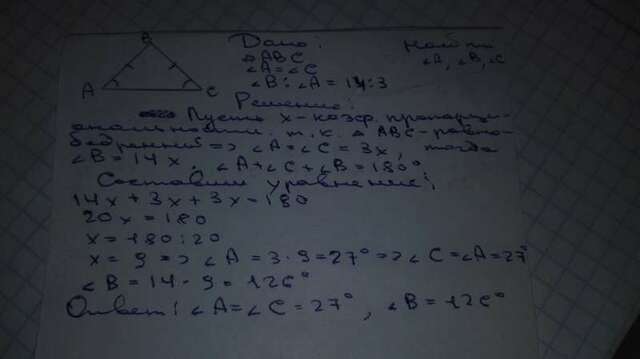 B
A C
Дано: Найти
△ABC ∠A, ∠B, ∠C
∠A = ∠C
∠B : ∠A = 14:3
Решение:
Пусть x - коэф. пропорци-
ональности. т.к. △ ABC - равно-
бедренный => ∠A = ∠C = 3x, тогда
∠B = 14x. ∠A + ∠C + ∠B = 180°
Составим уравнение:
14x + 3x + 3x = 180
20x = 180
x = 180 : 20
x = 9 => ∠A = 3 · 9 = 27° => ∠C = ∠A = 27°
∠B = 14 · 9 = 126°
Ответ: ∠A = ∠C = 27°, ∠B = 126°